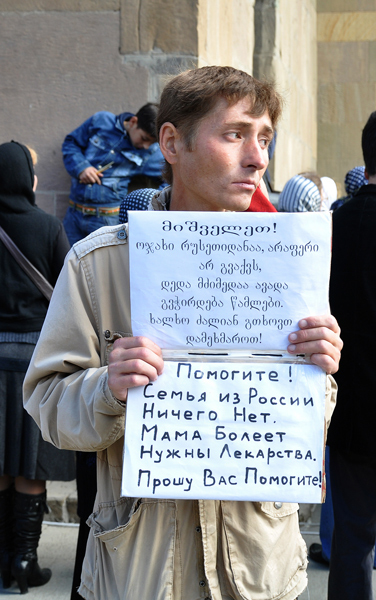 მიშველეთ!
ოჯახი რუსეთიდანაა, არაფერი
არ გვაქვს,
დედა მძიმედაა ავად
გვჭირდება წამლები.
ხალხო ძალიან გთხოვთ
დამეხმაროთ!
Помогите!
Семья из России
Ничего Нет.
Мама Болеет
Нужны Лекарства.
Прошу Вас Помогите!